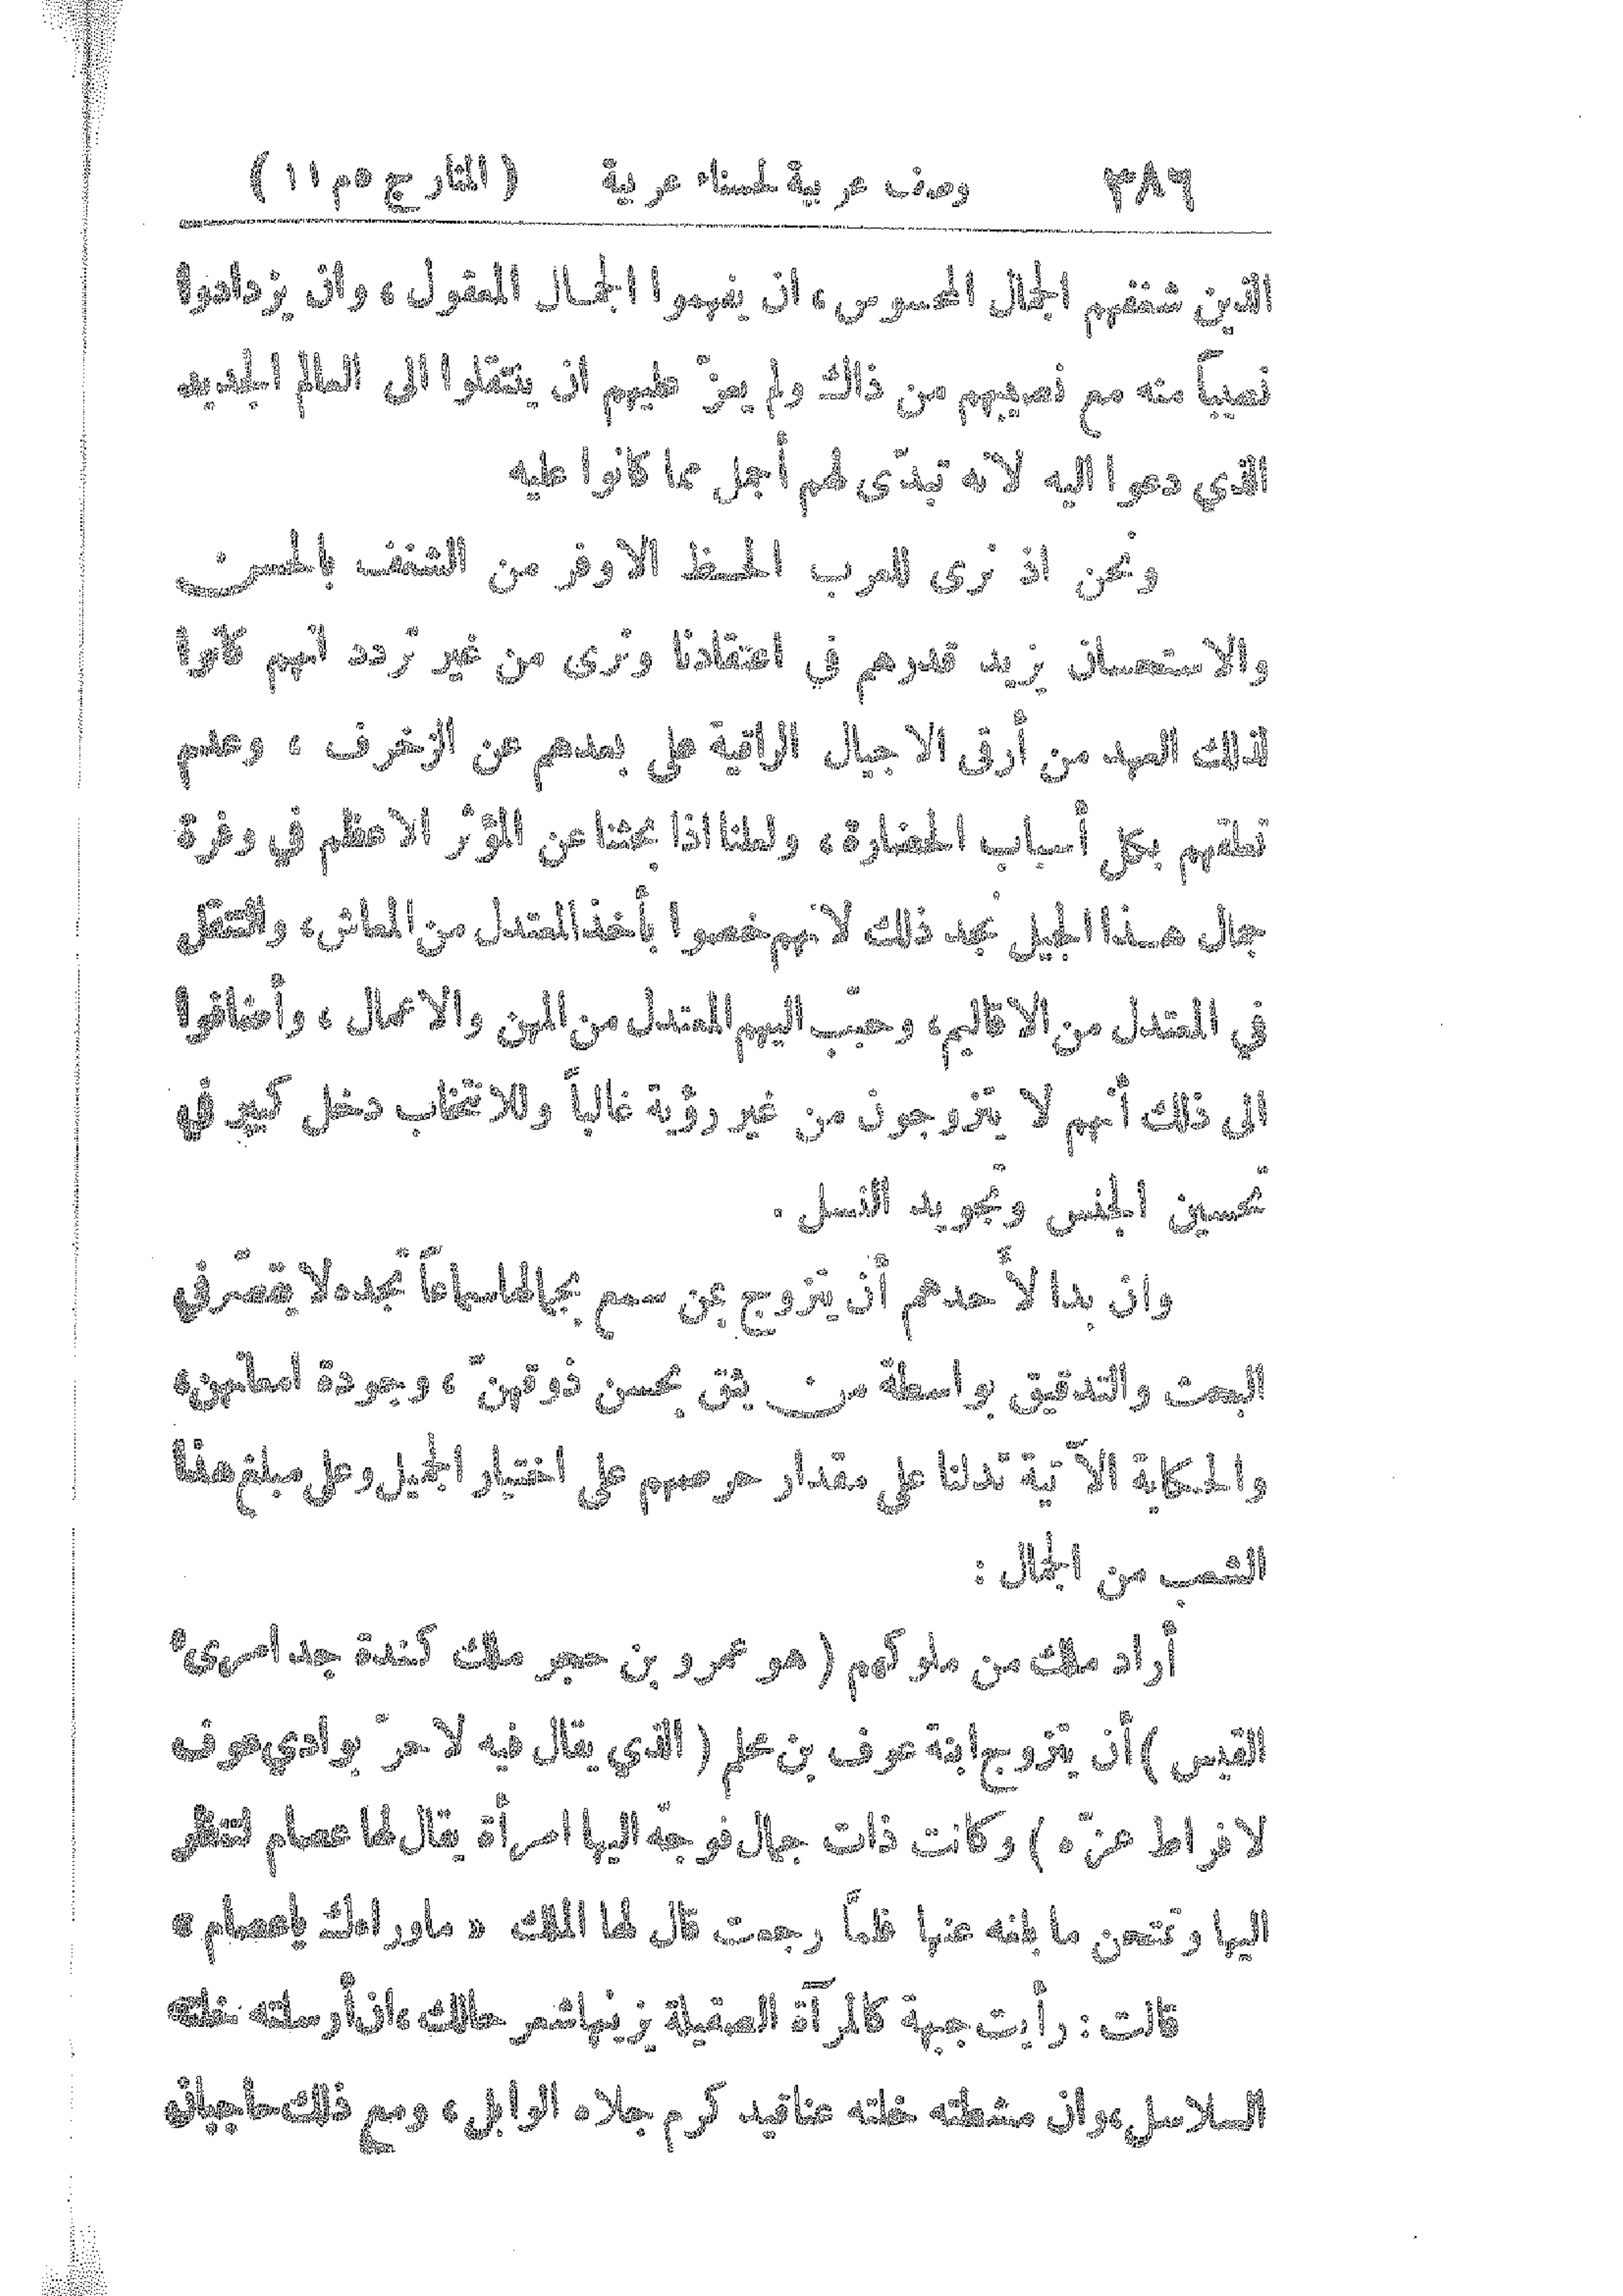 ٣٨٦ وصف عربية لحسناء عربية ( المنار ج ٥ م ١١ )
الذين شغفهم الجمال المحسوس ، ان يفهموا الجمال المعقول ، وان يزدادوا
نصيباً منه مع نصيبهم من ذاك ولم يعزّ عليهم ان ينتقلوا الى العالم الجديد
الذي دعوا اليه لانه تبدّى لهم أجمل مما كانوا عليه
ونحن اذ نرى للعرب الحظ الاوفر من الشغف بالحسن
والاستحسان يزيد قدرهم في اعتقادنا ونرى من غير تردد انهم كانوا
لذلك العهد من أرقى الاجيال الراقية على بعدهم عن الزخرف ، وعدم
تعلقهم بكل أسباب الحضارة ، ولعلنا اذا بحثنا عن المؤثر الاعظم في وفرة
جمال هذا الجيل نجد ذلك لانهم خصوا بأخذ المعتدل من المعاش ، والتنقل
في المعتدل من الاقاليم ، وحبّب اليهم المعتدل من المهن والاعمال ، وأضافوا
الى ذلك أنهم لا يتزوجون من غير رؤية غالباً وللانتخاب دخل كبير في
تحسين الجنس وتجويد النسل .
وان بدا لأحدهم أن يتزوج بمن سمع بجمالها سماعاً تجده لا يقصّر في
البحث والتدقيق بواسطة من يثق بحسن ذوقهنّ ، وجودة امعانهن ،
والحكاية الآتية تدلنا على مقدار حرصهم على اختيار الجميل وعلى مبلغ هذا
الشعب من الجمال :
أراد ملك من ملوكهم ( هو عمرو بن حجر ملك كندة جد امرىء
القيس ) أن يتزوج ابنة عوف بن محلم ( الذي يقال فيه لا حرّ بوادي عوف
لافراط عزّه ) وكانت ذات جمال فوجّه اليها امرأة يقال لها عصام لتنظر
اليها وتمتحن ما بلغه عنها فلماّ رجعت قال لها الملك « ماوراءك ياعصام »
قالت : رأيت جبهة كالمرآة الصقيلة يزينها شعر حالك ، ان أرسلته خلته
السلاسل ، وان مشطته خلته عناقيد كرم جلاه الوابل ، ومع ذلك حاجبان